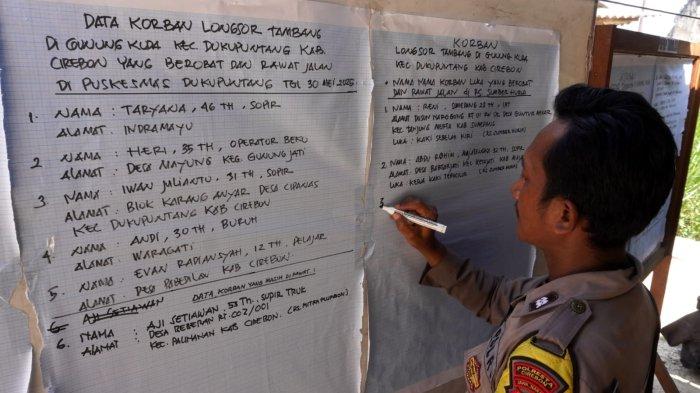 DATA KORBAN LONGSOR TAMBANG
DI GUNUNG KUDA KEC. DUKUPUNTANG KAB.
CIREBON YANG BEROBAT DAN RAWAT JALAN
DI PUSKESMAS DUKUPUNTANG TGL 30 MEI 2025
1. NAMA : TARYANA, 46 TH, SOPIR
ALAMAT : INDRAMAYU
2. NAMA : HERI, 35 TH, OPERATOR BEKU
ALAMAT : DESA MAYUNG KEC. GUNUNG JATI
3. NAMA : IWAN JULIANTO, 31 TH, SOPIR
ALAMAT : BLOK KARANG ANYAR DESA CIPANAS
KEC DUKUPUNTANG KAB CIREBON
4. NAMA : ANDI, 30 TH, BURUH
ALAMAT : WARAGATI
5. NAMA : EVAN RADIANSYAH, 12 TH, PELAJAR
ALAMAT : DESA KAB. CIREBON.
DATA KORBAN YANG MASIH DIRAWAT :
6. AJI SETIAWAN
6. NAMA : AJI SETIAWAN, 53 TH. SUPIR TRUK
ALAMAT : DESA RT. 002/001
KEC. PALIMANAN KAB. CIREBON. (RS. MITRA PLUMBON)
KORBAN
LONGSOR TAMBANG DI GUNUNG KUDA
KEC DUKUPUNTANG KAB. CIREBON
• NAMA NAMA KORBAN LUKA YANG BEROBAT
DAN RAWAT JALAN DI RS. SUMBER HURIP
1. NAMA : RENI, SUMEDANG 28 TH, IRT
ALAMAT DUSUN RT 01 RW DESA
KEC TANJUNG KAB SUMEDANG
LUKA : KAKI SEBELAH KIRI (RS. SUMBER HURIP)
2. NAMA : ABDU ROHIM, MAJALENGKA 32 TH, SOPIR
ALAMAT. DESA KEC KAB
LUKA : KEDUA KAKI (RS SUMBER HURIP)
3.
POLRESTA
CIREBON